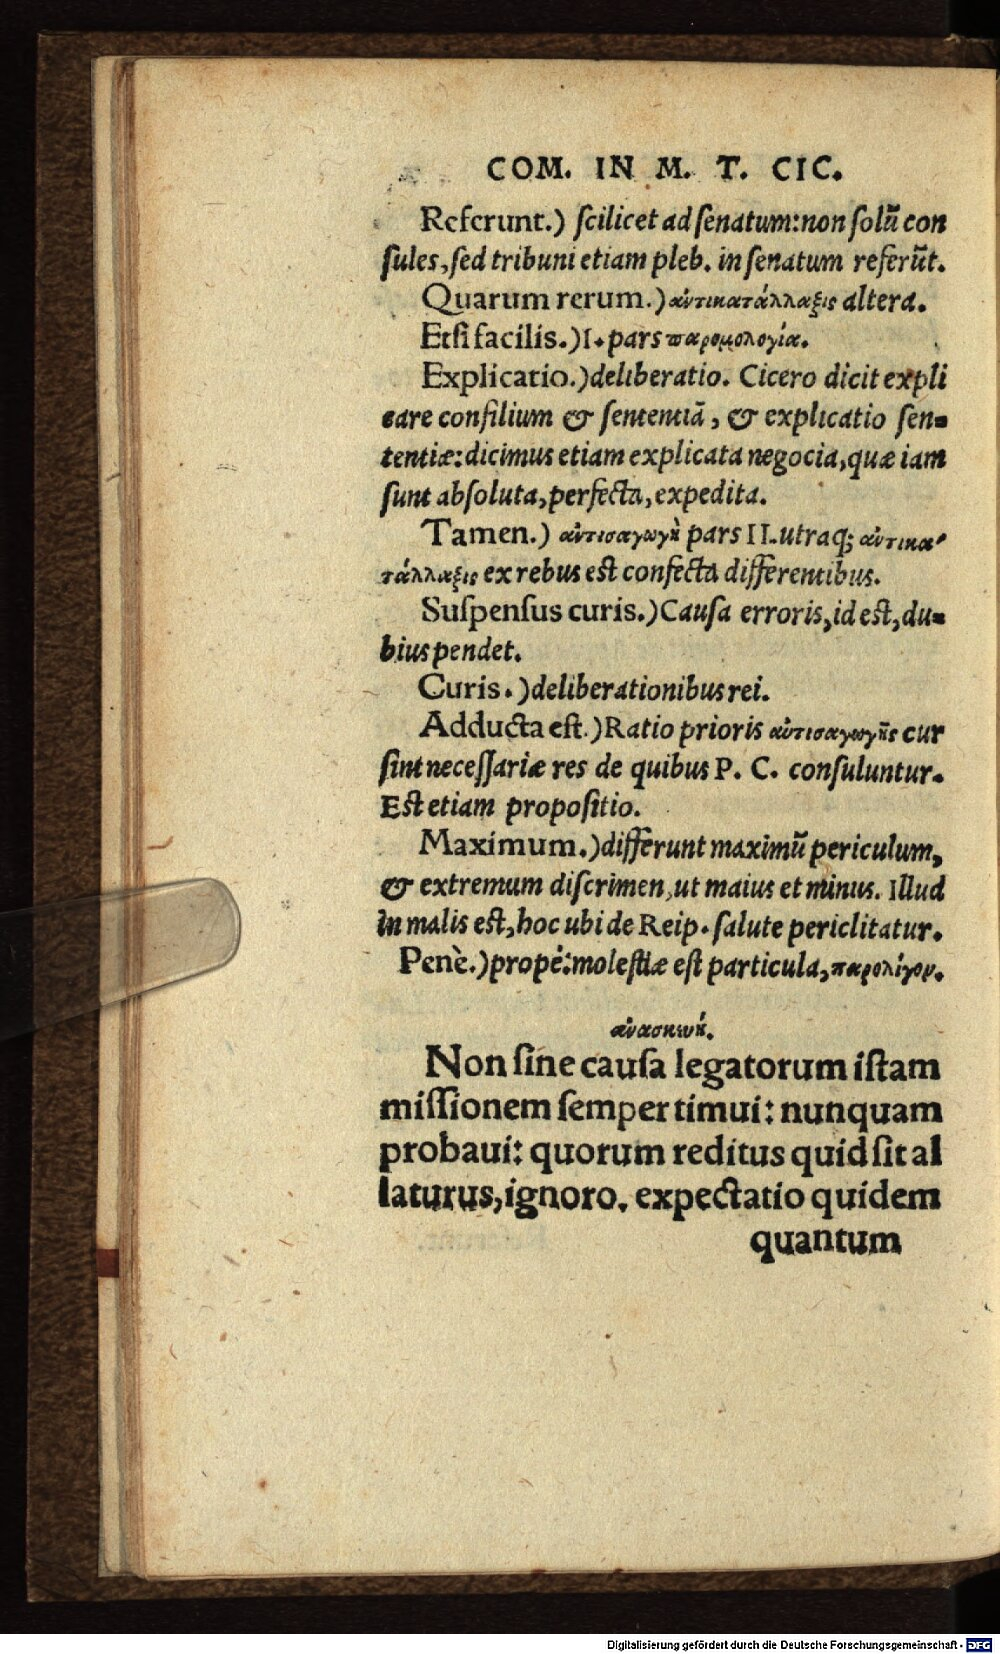 COM. IN M. T. CIC.
Referunt.) ſcilicet ad ſenatum: non ſolū con
ſules, ſed tribuni etiam pleb. in ſenatum referūt.
Quarum rerum.) ἀντικατάλλαξις altera.
Etſi facilis.) I. pars παρομολογία.
Explicatio.) deliberatio. Cicero dicit expli
care conſilium & ſententiā, & explicatio ſen-
tentiæ: dicimus etiam explicata negocia, quæ iam
ſunt abſoluta, perfecta, expedita.
Tamen.) ἀντισαγωγὴ pars II. utraq; ἀντικα-
τάλλαξις ex rebus eſt confecta differentibus.
Suſpenſus curis.) Cauſa erroris, id eſt, du-
bius pendet.
Curis.) deliberationibus rei.
Adducta eſt.) Ratio prioris ἀντισαγωγῆς cur
ſint neceſſariæ res de quibus P. C. conſuluntur.
Eſt etiam propoſitio.
Maximum.) differunt maximū periculum,
& extremum diſcrimen, ut maius et minus. Illud
in malis eſt, hoc ubi de Reip. ſalute periclitatur.
Penè.) propè: moleſtiæ eſt particula, παρολίγον.
ἀνασκευή.
Non ſine cauſa legatorum iſtam
miſſionem ſemper timui: nunquam
probaui: quorum reditus quid ſit al
laturus, ignoro. expectatio quidem
quantum
Digitalisierung gefördert durch die Deutsche Forschungsgemeinschaft - DFG